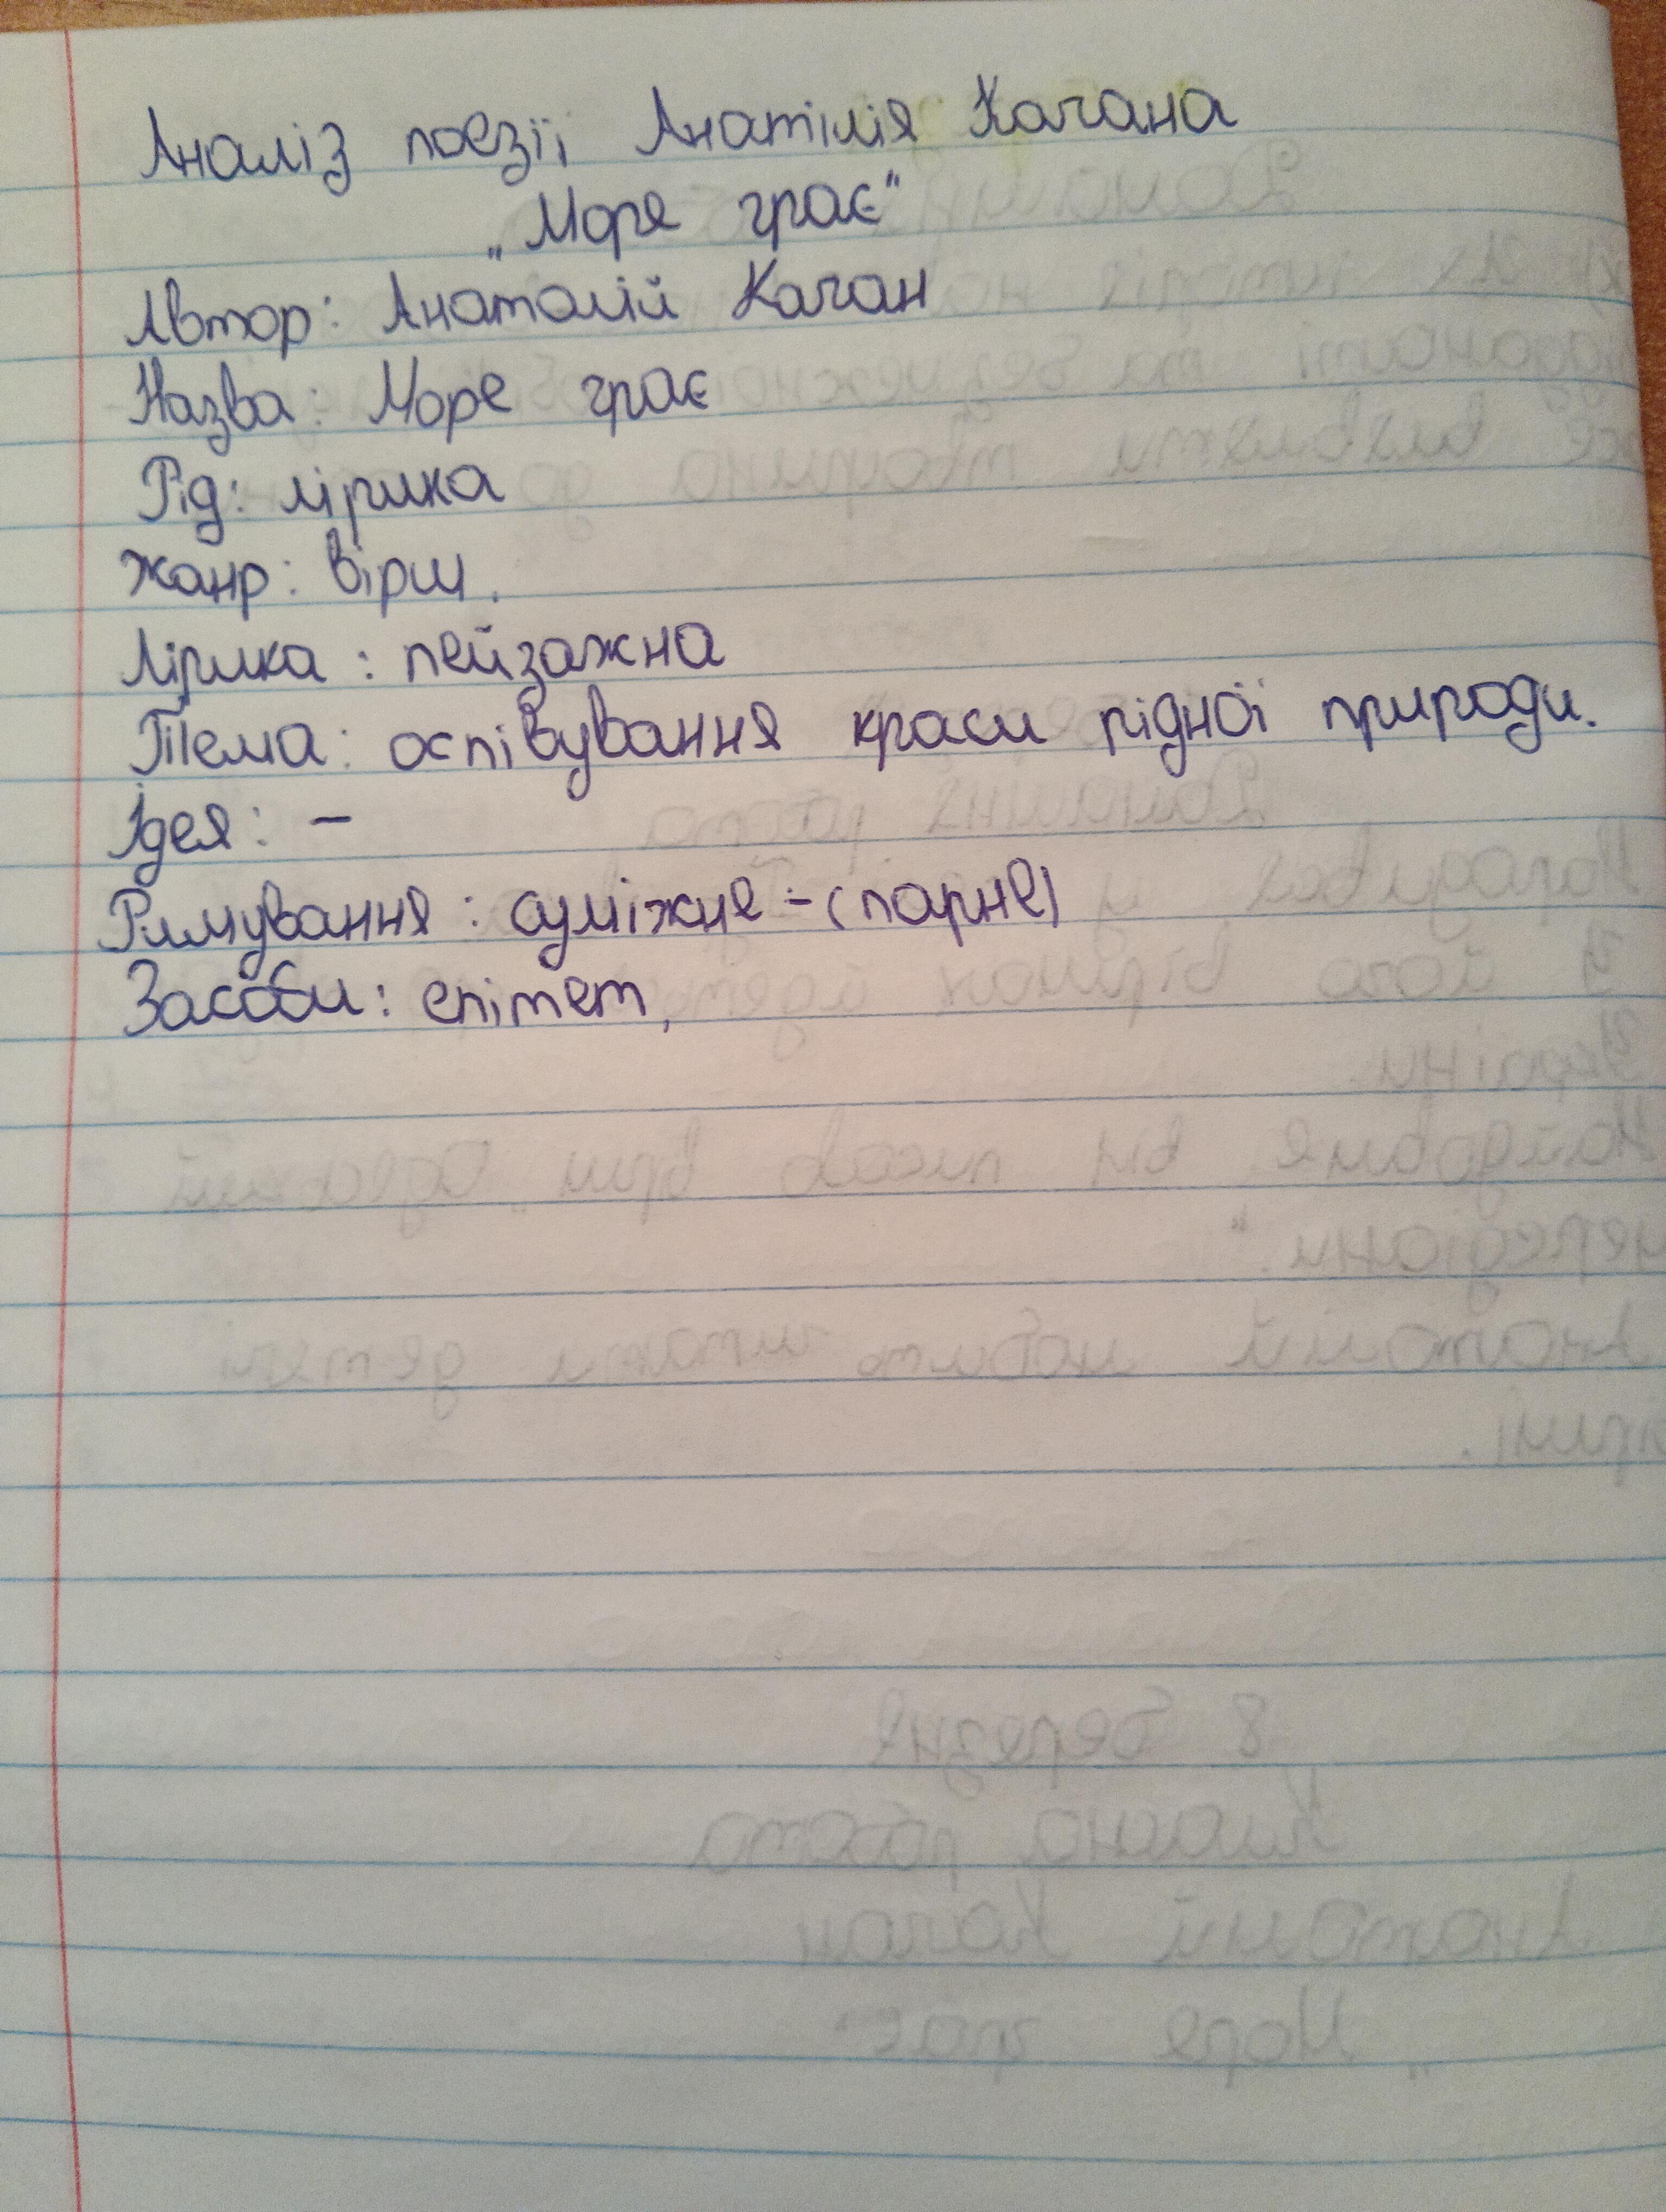 Аналіз поезії Анатілія Качана
„Море грає"
Автор: Анатолій Качан
Назва: Море грає
Рід: лірика
Жанр: вірш.
Лірика: пейзажна
Тема: оспівування краси рідної природи.
Ідея: –
Римування: суміжне – (парне)
Засоби: епітет,